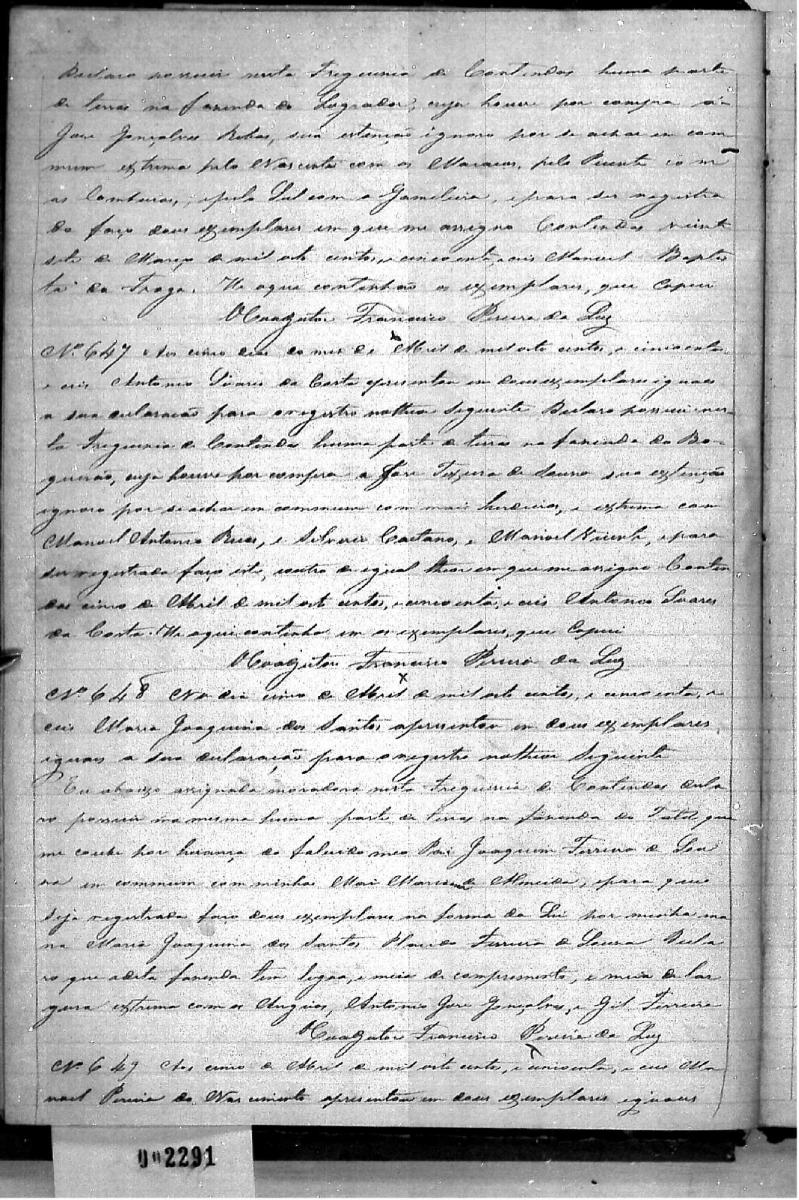 Declaro possuir nesta Freguesia de Contendas huma parte
de terras na fazenda do Logrador, cuja houve por compra a
Jose Gonçalves Rebas, sua extenção ignoro por se achar em com
mum extrema pelo Nascente com os Macacos, pelo Puente com
as, e pelo Sul com a Gamileira, e para ser registra
da faço dous exemplares em que me assigno Contendas vinte
sete de Março de mil oito centos, e cincoenta, e ceis Manoel Baptis
ta da Fraga. He oque continhão os exemplares, que Copiei
O Coadjutor Francisco Pereira da Luz
Nº 647 Aos cinco dias do mes de Abril de mil oito centos, e cincoenta
e ceis Antonio Soares da Costa apresentou em dous exemplares iguaes
a sua declaração para o registro no theor Seguinte Declaro possuir nes
ta Freguesia de Contendas huma parte de terras na fazenda do Bo
queirão, cuja houve por compra a Jose Teixeira de Souro sua extenção
ignoro por se achar em commum com mais herdeiros, e extrema com
Manoel Antonio, e Silverio Caetano, e Manoel Vicente, e para
ser registrada faço este, e outro de igual theor em que me assigno Conten
das cinco de Abril de mil oito centos, e cincoenta, e ceis Antonio Soares
da Costa. He oque continha em os exemplares, que Copiei
O Coadjutor Francisco Pereira da Luz
Nº 648 No dia cinco de Abril de mil oito centos, e cincoenta, e
ceis Maria Joaquina dos Santos apresentou em dous exemplares
iguaes a sua declaração para o registro no theor Seguinte
Eu abaixo assignada moradora nesta Freguesia de Contendas decla
ro possuir na mesma huma parte de terras na fazenda do Tatú, que
me coube por herança do falecido meo Pai Joaquim Ferreira de Sou
za em commum com minha Mai Maria de Almeida, e para que
seja registrada faço dous exemplares na forma da Lei por minha ma
na Maria Joaquina dos Santos Placido Ferreira de Souza Decla
ro que a dita fazenda tem legoa, e meia de comprimento, e meia de lar
gura extrema com os Angicos, Antonio Jose Gonçalves, e Gil Ferreira
O Coadjutor Francisco Pereira da Luz
Nº 649 Aos cinco de Abril de mil oito cento, e cincoenta, e ceis Ma
noel Pereira do Nascimento apresentou em dous exemplares iguaes
002291